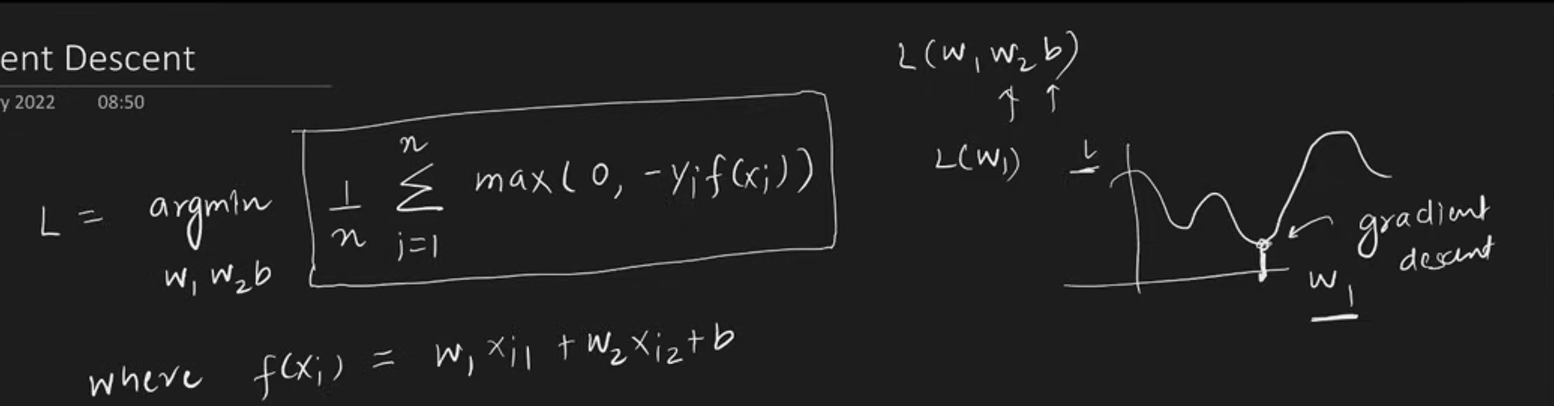 ent Descent
y 2022 08:50
L = argmin 1/n n Σ i=1 max(0, -yᵢf(xᵢ))
w₁ w₂ b
where f(xᵢ) = w₁ xᵢ₁ + w₂ xᵢ₂ + b
L(w₁ w₂ b)
L(w₁)
L
gradient
descent
w₁